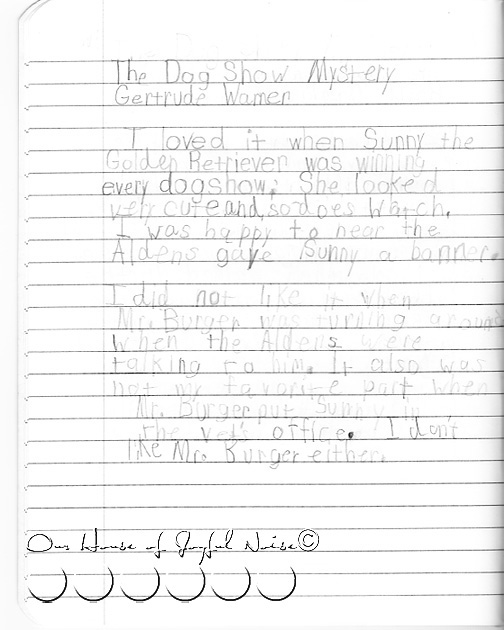 The Dog Show Mystery
Gertrude Warner
I loved it when Sunny the
Golden Retriever was winning
every dogshow. She looked
very cute and so does Watch.
I was happy to hear the
Aldens gave Sunny a banner.
I did not like it when
Mr. Burger was turning around
when the Aldens were
talking to him. It also was
not my favorite part when
Mr. Burger put Sunny in
the vet's office. I don't
like Mr. Burger either.
Our House of Joyful Noise©